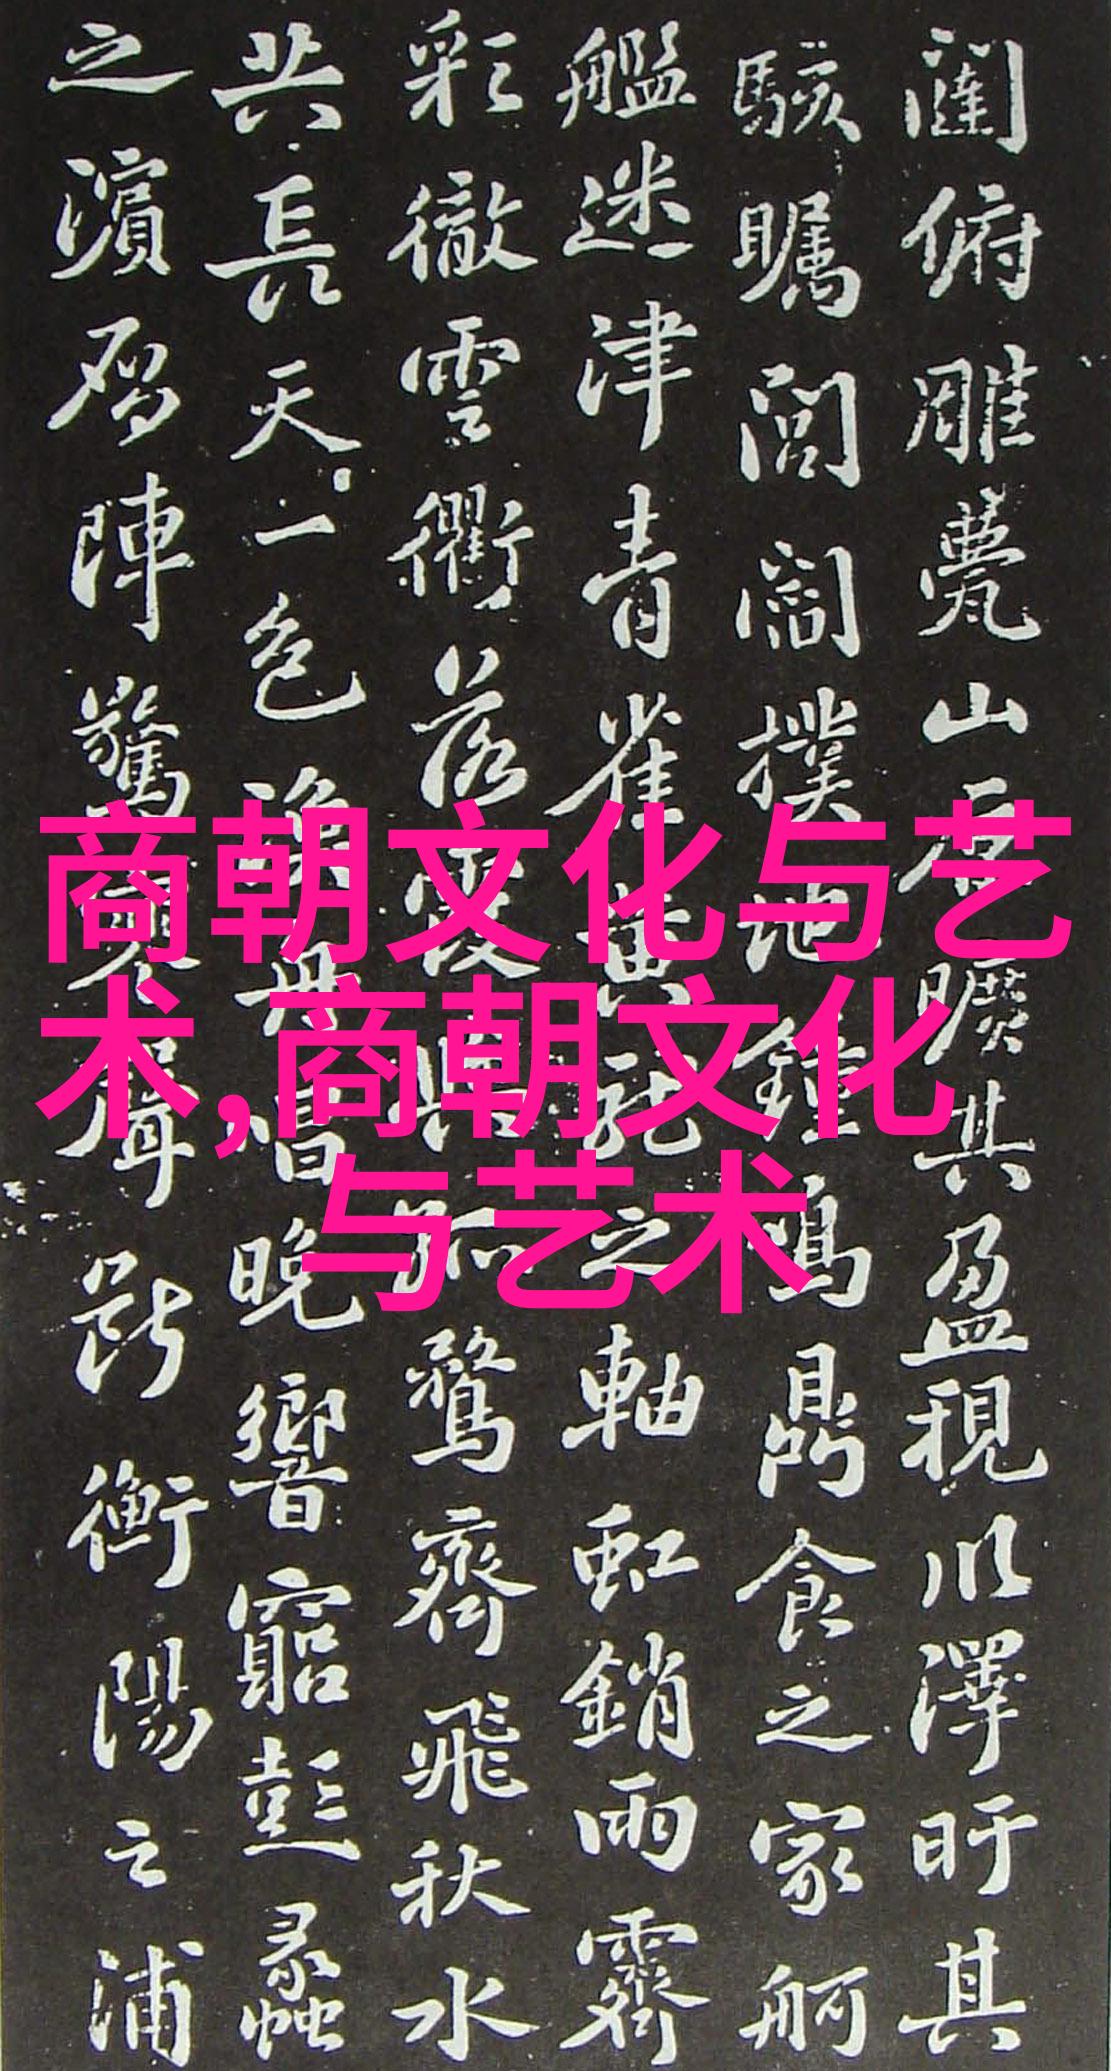 商朝文化与艺
术,商朝文化
与艺术
闥俯雕甍山原曠其盈視川澤盱其
駭矚閭閻撲地鐘鳴鼎食之家舸
艦迷津青雀黃龍之軸虹銷雨霽
彩徹雲衢落霞與孤鶩齊飛秋水
共長天一色漁舟唱晚響窮彭蠡
之濱雁陣驚寒聲斷衡陽之浦